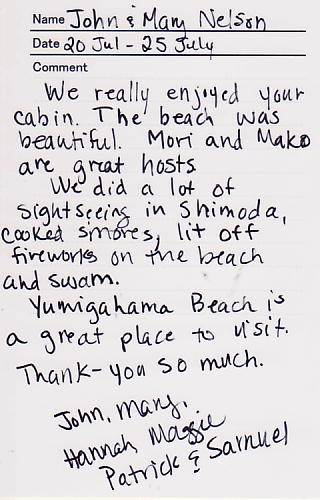 Name John & Mary Nelson
Date 20 Jul - 25 July
Comment
We really enjoyed your
cabin. The beach was
beautiful. Mori and Mako
are great hosts
We did a lot of
sightseeing in Shimoda,
cooked smores, lit off
fireworks on the beach
and swam.
Yumigahama Beach is
a great place to visit.
Thank-you so much.
John, Mary,
Hannah, Maggie
Patrick & Samuel